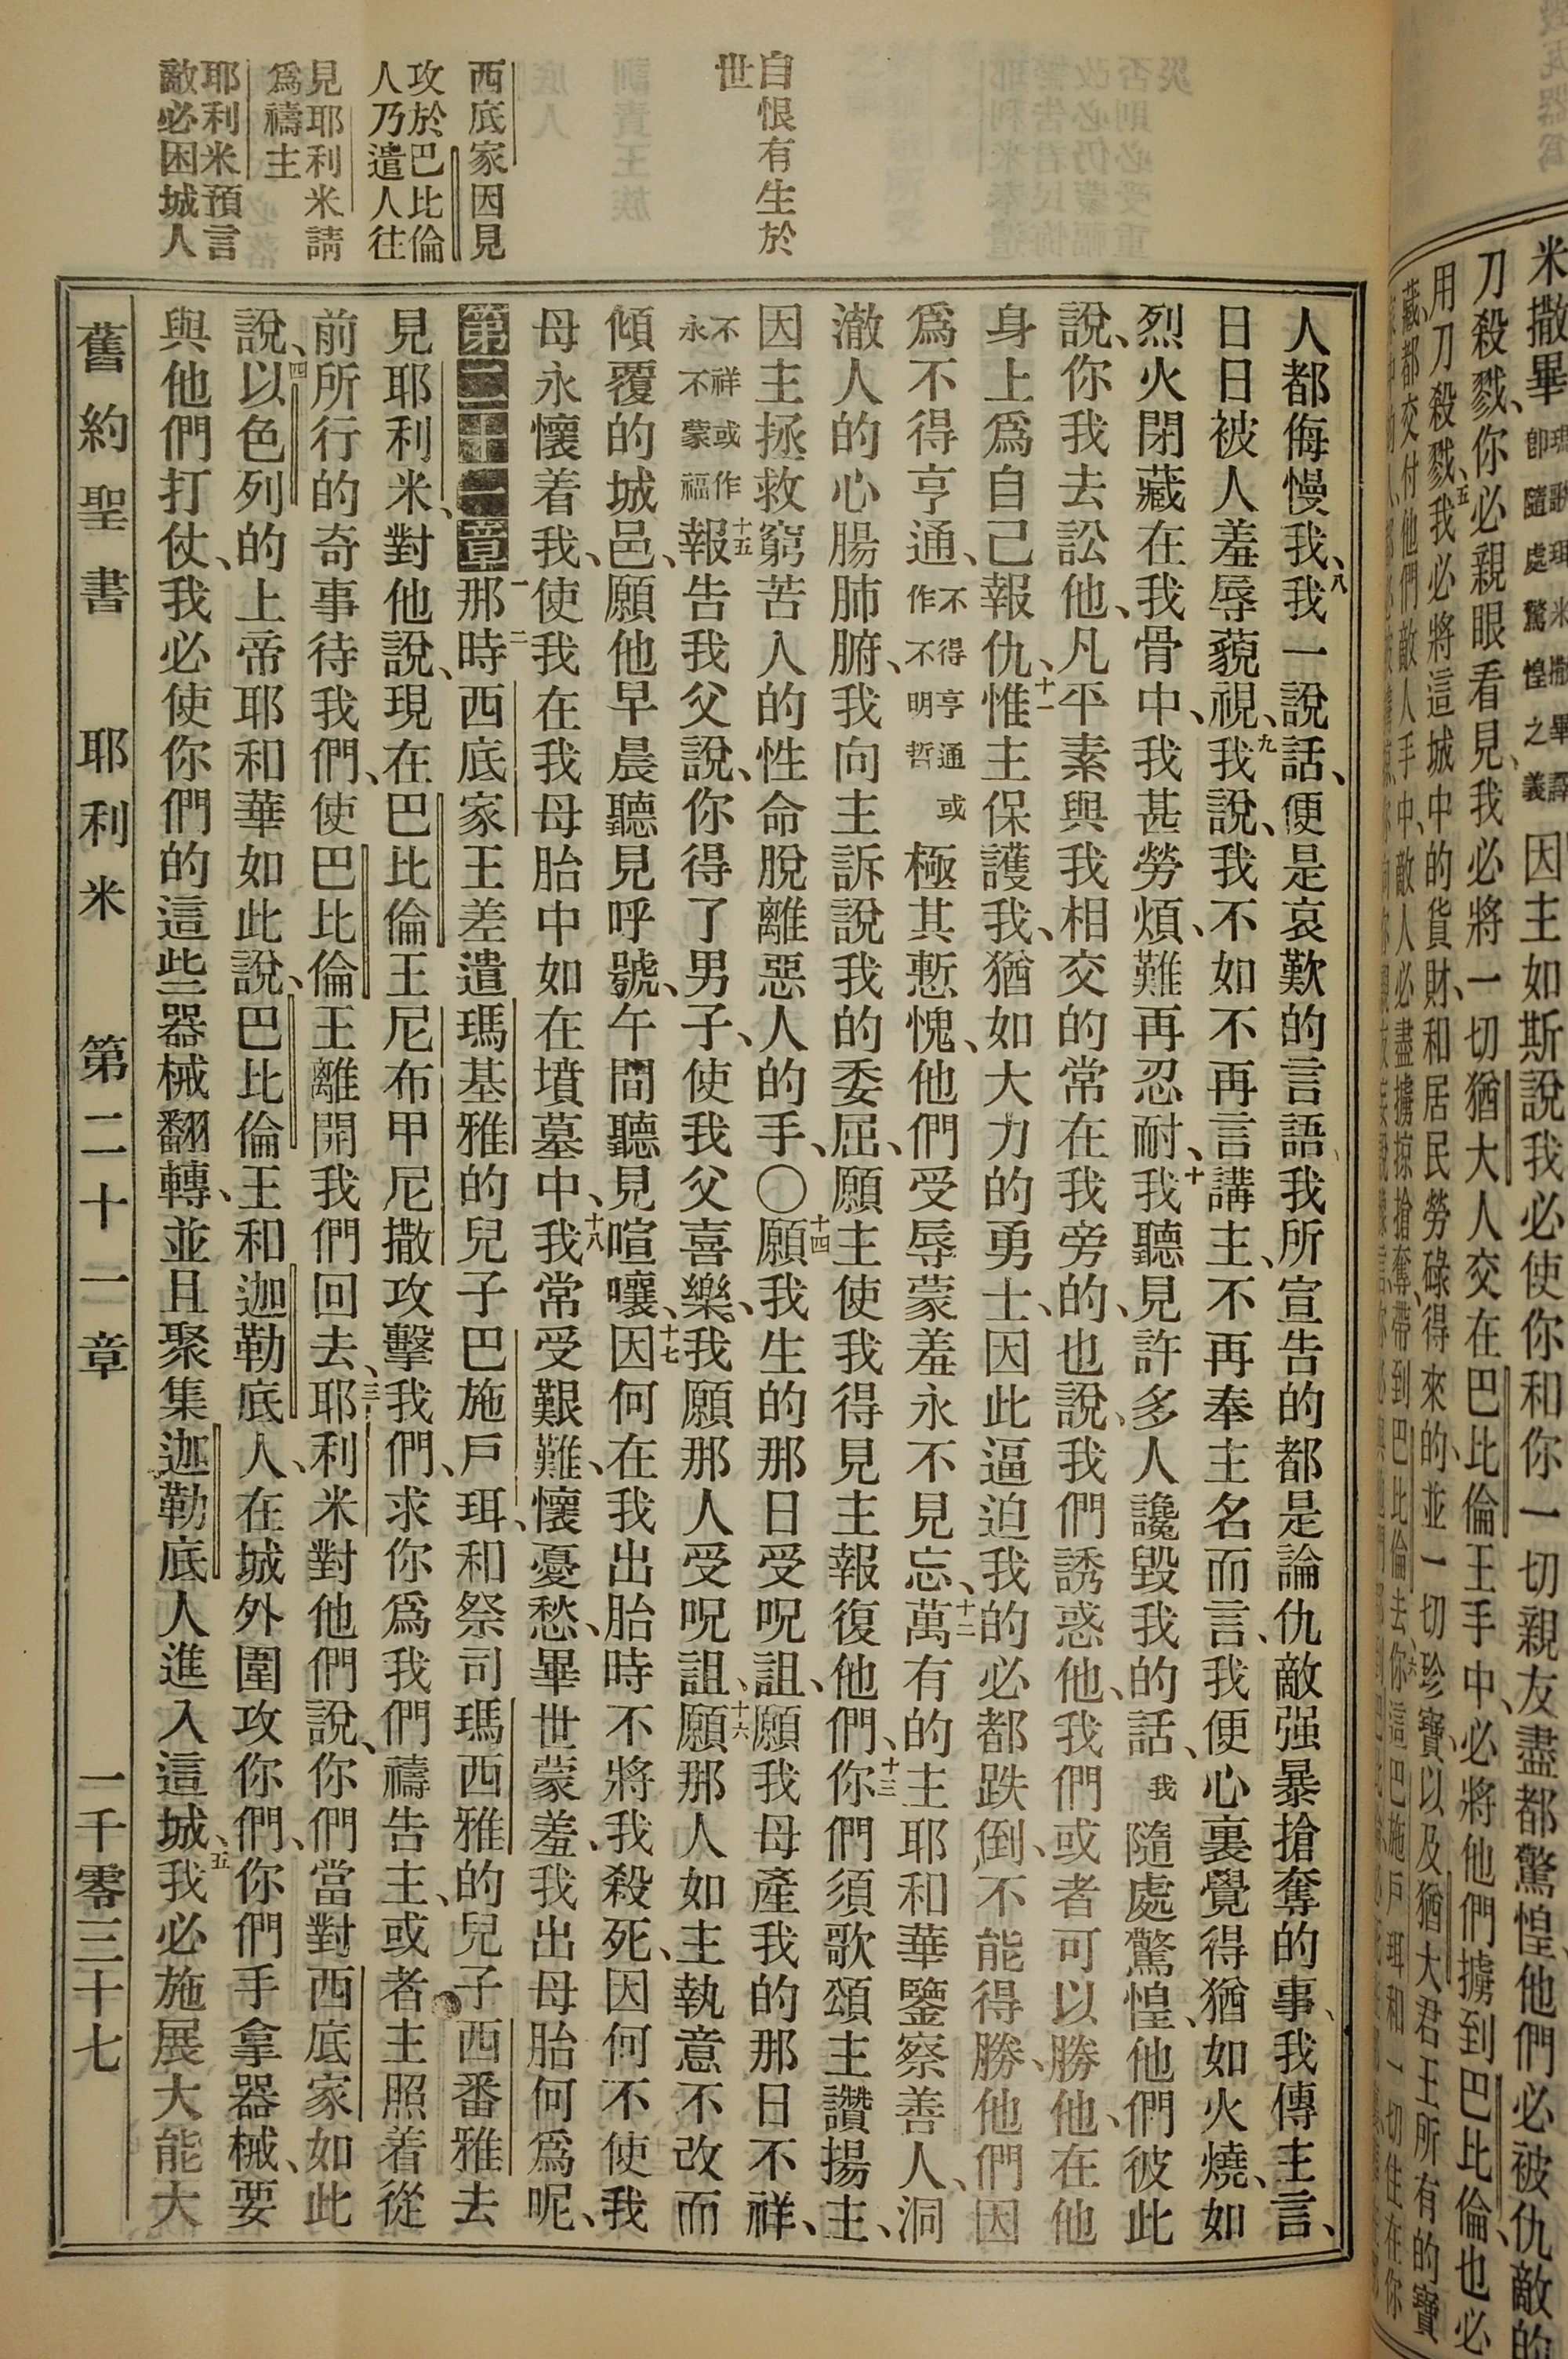 米撒畢
因主如斯說我必使你和你一切親友盡都驚惶、他們必被仇敵的
刀殺戮、你必親眼看見、我必將一切猶大人交在巴比倫王手中、必將他們擄到巴比倫、也必
用刀殺戮、五我必將這城中的貨財、和居民勞碌得來的、並一切珍寶、以及猶大君王所有的寶
自恨有生於
世
西底家因見
攻於巴比倫
人乃遣人往
見耶利米請
爲禱主
耶利米預言
敵必困城人
人都侮慢我、八我一說話、便是哀歎的言語、我所宣告的都是論仇敵强暴搶奪的事、我傳主言、
日日被人羞辱藐視、九我說、我不如不再言講主、不再奉主名而言、我便心裏覺得猶如火燒、如
烈火閉藏在我骨中、我甚勞煩、難再忍耐、十我聽見許多人讒毀我的話、我隨處驚惶、他們彼此
說、你我去訟他、凡平素與我相交的常在我旁的、也說、我們誘惑他、我們或者可以勝他、在他
身上爲自己報仇、十一惟主保護我、猶如大力的勇士、因此逼迫我的必都跌倒、不能得勝、他們因
爲不得亨通、不得亨通或作不明哲極其慙愧、他們受辱蒙羞、永不見忘、十二萬有的主耶和華鑒察善人、洞
澈人的心腸肺腑、我向主訴說我的委屈、願主使我得見主報復他們、十三你們須歌頌主、讚揚主、
因主拯救窮苦人的性命脫離惡人的手、〇十四願我生的那日受呪詛、願我母產我的那日不祥、
不祥或作永不蒙福十五報告我父說、你得了男子、使我父喜樂、我願那人受呪詛、十六願那人如主執意不改而
傾覆的城邑、願他早晨聽見呼號、午間聽見喧嚷、十七因何在我出胎時不將我殺死、因何不使我
母永懷着我、使我在我母胎中如在墳墓中、十八我常受艱難、懷憂愁、畢世蒙羞、我出母胎何爲呢、
第二十一章一那時二西底家王差遣瑪基雅的兒子巴施戶珥、和祭司瑪西雅的兒子西番雅去
見耶利米、對他說、現在巴比倫王尼布甲尼撒攻擊我們、求你爲我們禱告主、或者主照着從
前所行的奇事待我們、使巴比倫王離開我們回去、三耶利米對他們說、你們當對西底家如此
說、四以色列的上帝耶和華如此說、巴比倫王和迦勒底人、在城外圍攻你們、你們手拿器械、要
與他們打仗、我必使你們的這些器械翻轉、並且聚集迦勒底人進入這城、五我必施展大能大
舊約聖書 耶利米 第二十一章 一千零三十七